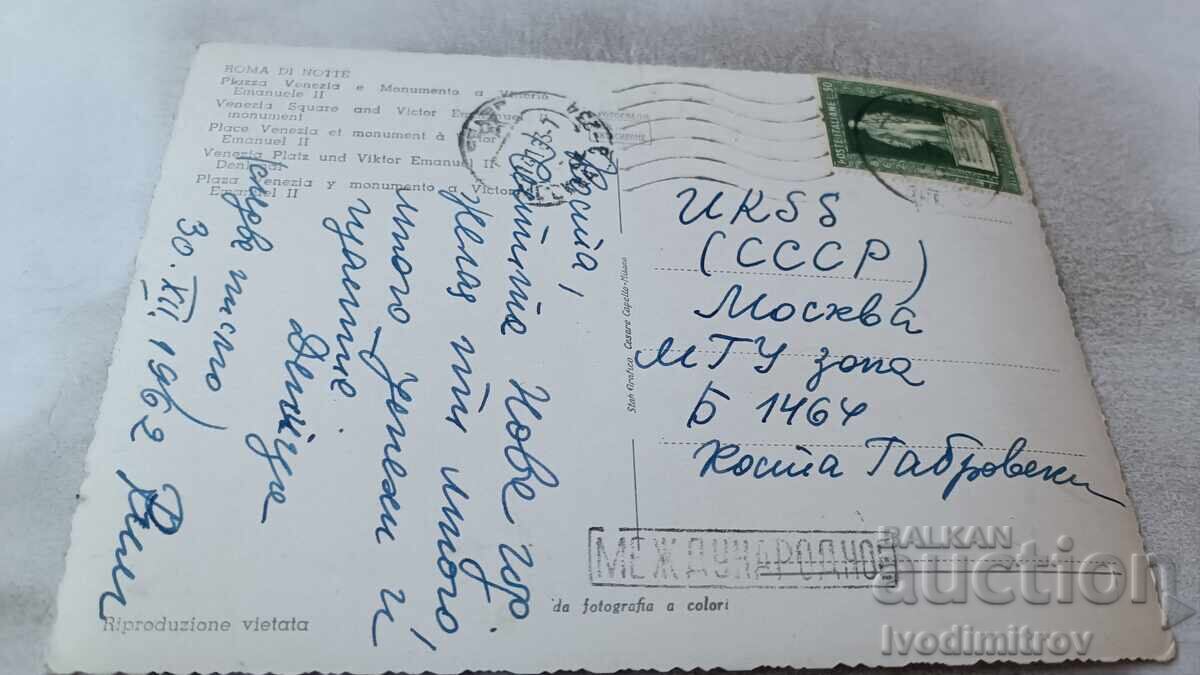 ROMA DI NOTTE
Piazza Venezia e Monumento a Vittorio
Emanuele II
Venezia Square and Victor Emanuel
monument
Place Venezia et monument à Victor
Emanuel II
Venezia Platz und Viktor Emanuel II
Plaza Venezia y monumento a Victor
Emanuel II
Коста,
Честита Нова год
Желая ти много,
много успехи и
щастие
30.XII.1962 Рим
POSTE ITALIANE L.30
UKSS
(СССР)
Москва
МГУ зона
Б 1464
Коста Габровски
МЕЖДУНАРОДНОЕ
Stab Grafico Cesare Capello-Milano
da fotografia a colori
Riproduzione vietata
BALKAN
auction
Ivodimitrov